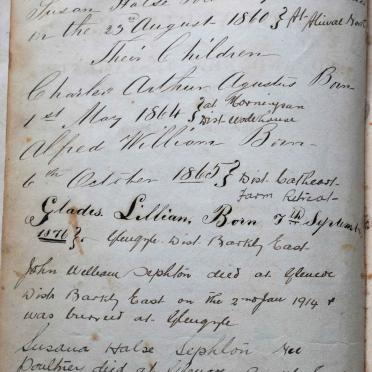 Susan Halse
in the 23rd August 1860 } At Aliwal North
Their Children
Charles Arthur Agustus Born
1st May 1864 } at Morningsun Dist Wodehouse
Alfred William Born
6th October 1865 } Dist Cathcart Farm Retreat
Glades. Lillian. Born 7th September
1876 } Glengyle. Dist Barkly East
John William Sephton died at Glencoe
Dist Barkly East on the 2nd Jan 1914 &
was burried at Glengyle
Susana Halse Sephton nee
died at